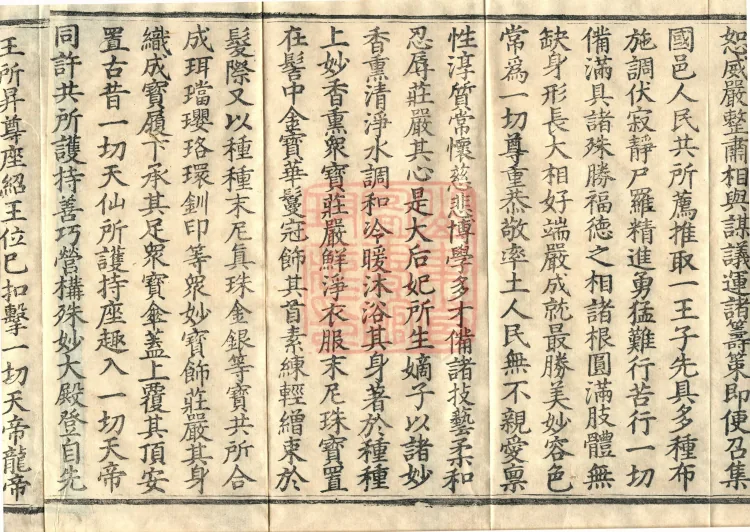 恕威嚴整肅相與謀議運諸籌策即便召集
國邑人民共所薦推取一王子先具多種布
施調伏寂靜尸羅精進勇猛難行苦行一切
備滿具諸殊勝福德之相諸根圓滿肢體無
缺身形長大相好端嚴成就最勝美妙容色
常為一切尊重恭敬率土人民無不親愛稟
性淳質常懷慈悲博學多才備諸技藝柔和
忍辱莊嚴其心是大后妃所生嫡子以諸妙
香熏清淨水調和冷暖沐浴其身著於種種
上妙香熏眾寶莊嚴鮮淨衣服末尼珠寶置
在髻中金寶華鬘冠飾其首素練輕繒束於
髮際又以種種末尼真珠金銀等寶共所合
成珥璫瓔珞環釧印等眾妙寶飾莊嚴其身
織成寶履下承其足眾寶傘蓋上覆其頂安
置古昔一切天仙所護持座趣入一切天帝
同許共所護持善巧營構殊妙大殿登自先
王所昇尊座紹王位已扣擊一切天帝龍帝